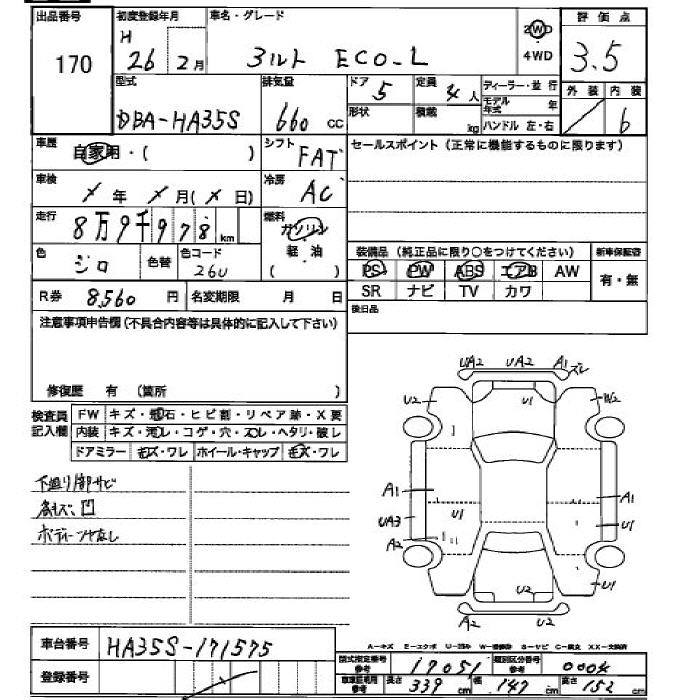 出品番号 170
初度登録年月 H 26年 2月
車名・グレード アルト ECO-L
2WD・4WD
評価点 3.5
型式 DBA-HA35S
排気量 660 cc
ドア 5
定員 4人
ディーラー・並行
モデル年式 年
ハンドル 左・右
形状
積載 kg
外装 内装 6
車歴 自家用・( )
シフト FAT
セールスポイント (正常に機能するものに限ります)
車検 年 月( 日)
冷房 AC
走行 8万9千978 km
燃料 ガソリン・軽油 ( )
色 シロ 色替 色コード 26U
装備品 (純正品に限り○をつけてください) 新車保証書
PS PW ABS エアB AW 有・無
SR ナビ TV カワ
R券 8,560 円 名変期限 月 日
後日品
注意事項申告欄(不具合内容等は具体的に記入して下さい)
修復歴 有 (箇所 )
検査員記入欄 FW キズ・飛石・ヒビ割・リペア跡・X要
内装 キズ・汚レ・コゲ・穴・スレ・ヘタリ・破レ
ドアミラー キズ・ワレ ホイール・キャップ キズ・ワレ
下廻り部サビ
各キズ、凹
ボディーツヤなし
UA2 UA2 A1 ズレ
U2 U1 W2
A1 U1 A1
UA3 U1
A2
U2 U1
A2 U2
車台番号 HA35S-171575
A-キズ E-エクボ U-凹み W-補修跡 S-サビ C-腐食 XX-交換済
型式指定番号 参考 17051 類別区分番号 参考 0004
登録番号
車庫証明用 参考 長さ 339 cm 幅 147 cm 高さ 152 cm